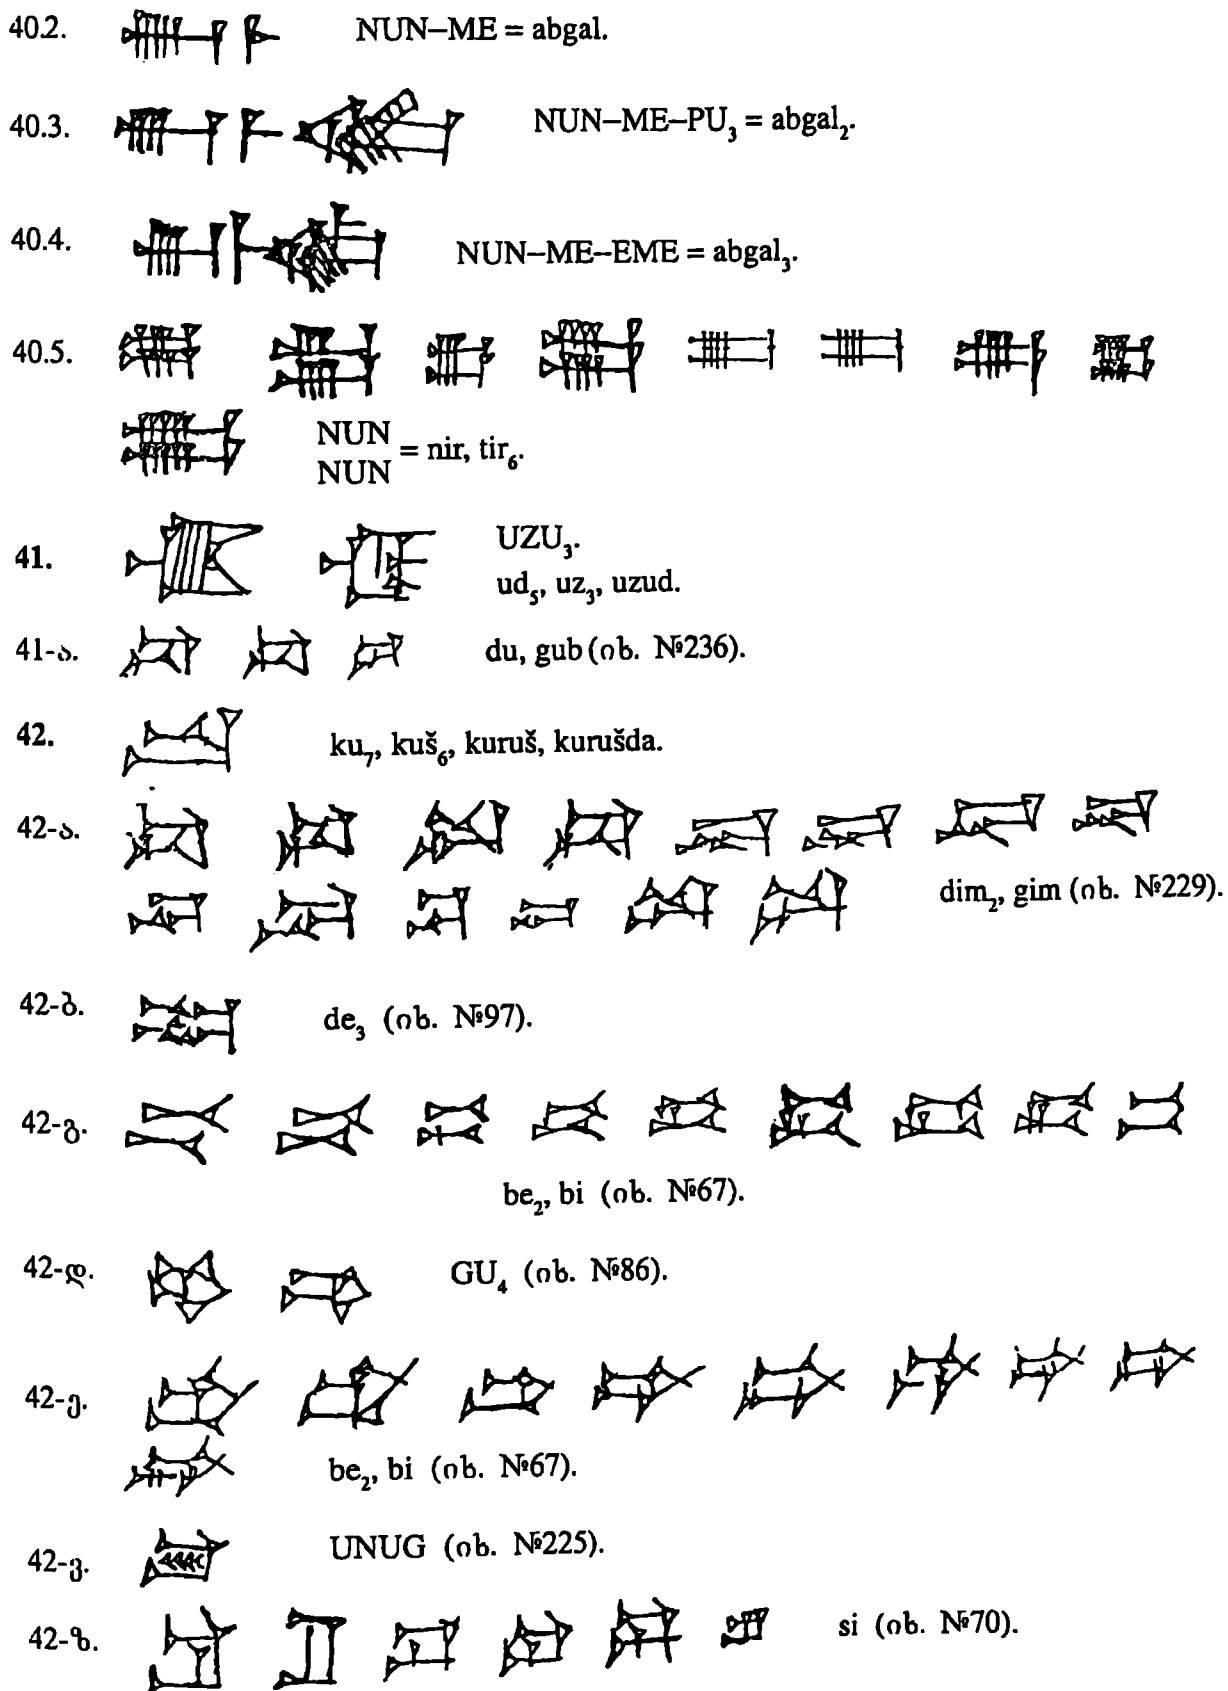 40.2. NUN–ME = abgal.
40.3. NUN–ME–PU₃ = abgal₂.
40.4. NUN–ME–EME = abgal₃.
40.5.
NUN
NUN = nir, tir₆.
41. UZU₃.
ud₅, uz₃, uzud.
41-ა. du, gub (იხ. №236).
42. ku₇, kuš₆, kuruš, kurušda.
42-ა.
dim₂, gim (იხ. №229).
42-ბ. de₃ (იხ. №97).
42-გ.
be₂, bi (იხ. №67).
42-დ. GU₄ (იხ. №86).
42-ე.
be₂, bi (იხ. №67).
42-ვ. UNUG (იხ. №225).
42-ზ. si (იხ. №70).